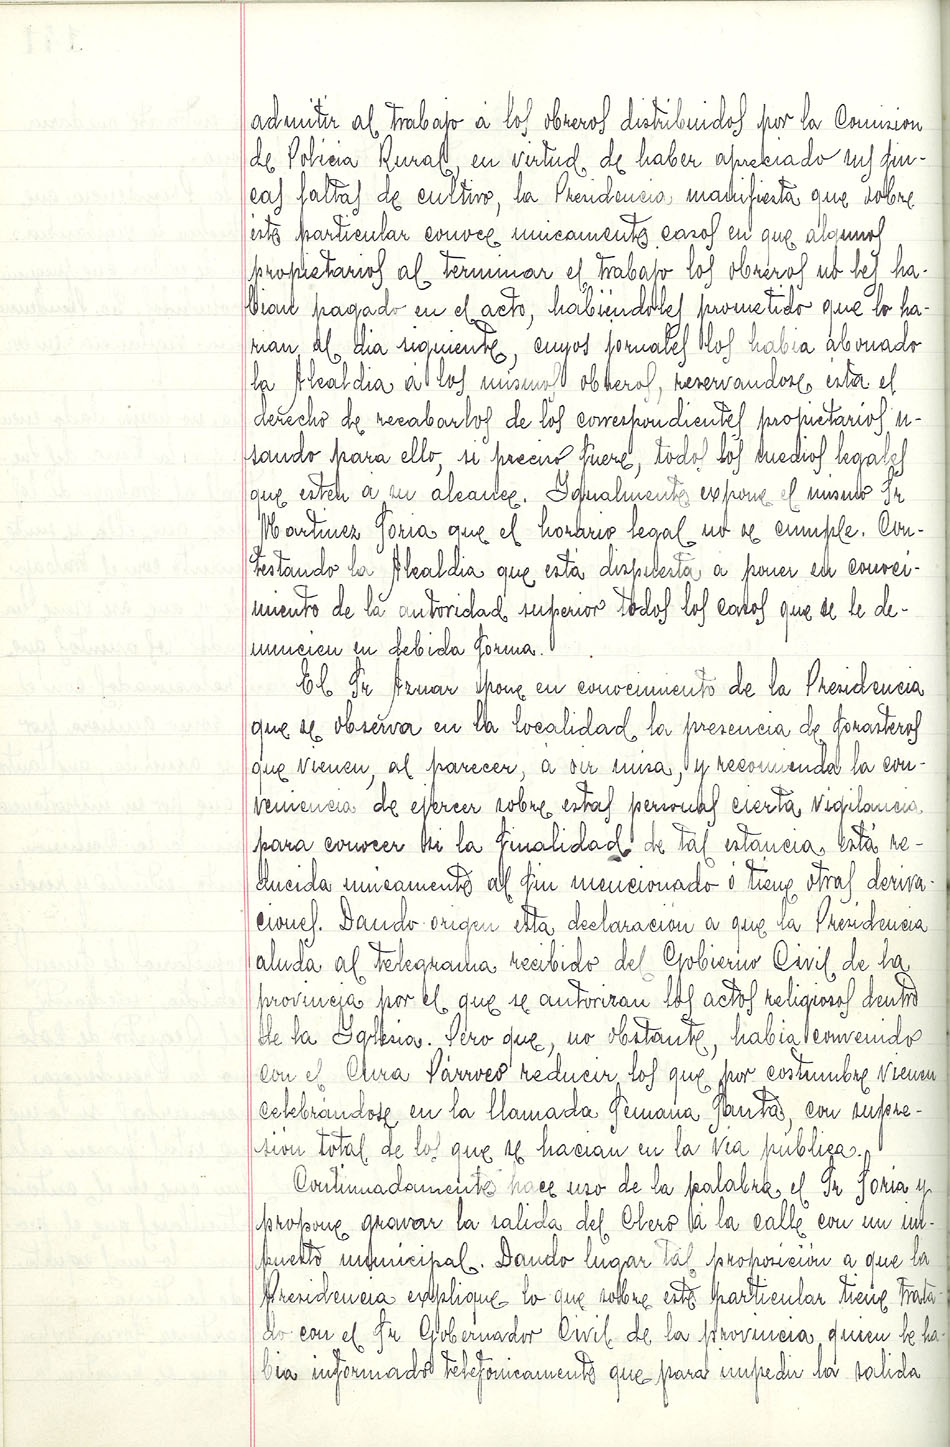 admitir al trabajo á los obreros distribuidos por la Comision
de Policia Rural, en virtud de haber apreciado sus fin-
cas faltas de cultivo, la Presidencia manifiesta que sobre
este particular conoce unicamente casos en que algunos
propietarios al terminar el trabajo los obreros no les ha-
bian pagado en el acto, habiéndoles prometido que lo ha-
rian al dia siguiente, cuyos jornales los habia abonado
la Alcaldia á los mismos obreros, reservandose ésta el
derecho de recabarlos de los correspondientes propietarios u-
sando para ello, si preciso fuere, todos los medios legales
que esten a su alcance. Igualmente expone el mismo Sr
Martinez Soria que el horario legal no se cumple. Con-
testando la Alcaldia que está dispuesta a poner en conoci-
miento de la autoridad superior todos los casos que se le de-
nuncien en debida forma.
El Sr Aznar pone en conocimiento de la Presidencia
que se observa en la localidad la presencia de forasteros
que vienen, al parecer, á oir misa, y recomienda la con-
veniencia de ejercer sobre estas personas cierta vigilancia
para conocer si la finalidad de tal estancia está re-
ducida unicamente al fin mencionado ó tiene otras deriva-
ciones. Dando origen esta declaración a que la Presidencia
aluda al telegrama recibido del Gobierno Civil de la
provincia por el que se autorizan los actos religiosos dentro
de la Iglesia. Pero que, no obstante, habia convenido
con el Cura Párroco reducir los que por costumbre vienen
celebrándose en la llamada Semana Santa, con supre-
sión total de los que se hacian en la via pública.
Continuadamente hace uso de la palabra el Sr Soria y
propone gravar la salida del Clero á la calle con un im-
puesto municipal. Dando lugar tal proposición a que la
Presidencia explique lo que sobre este particular tiene trata-
do con el Sr Gobernador Civil de la provincia quien le ha-
bia informado telefonicamente que para impedir la salida